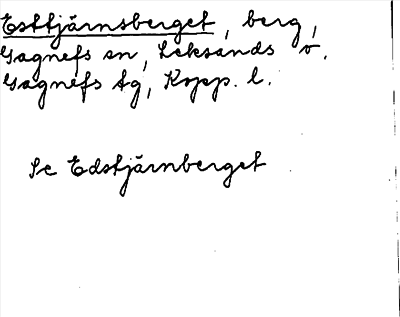 Esttjärnsberget, berg,
Gagnefs sn, Leksands v.
Gagnefs tg, Kopp. l.
Se Edstjärnberget